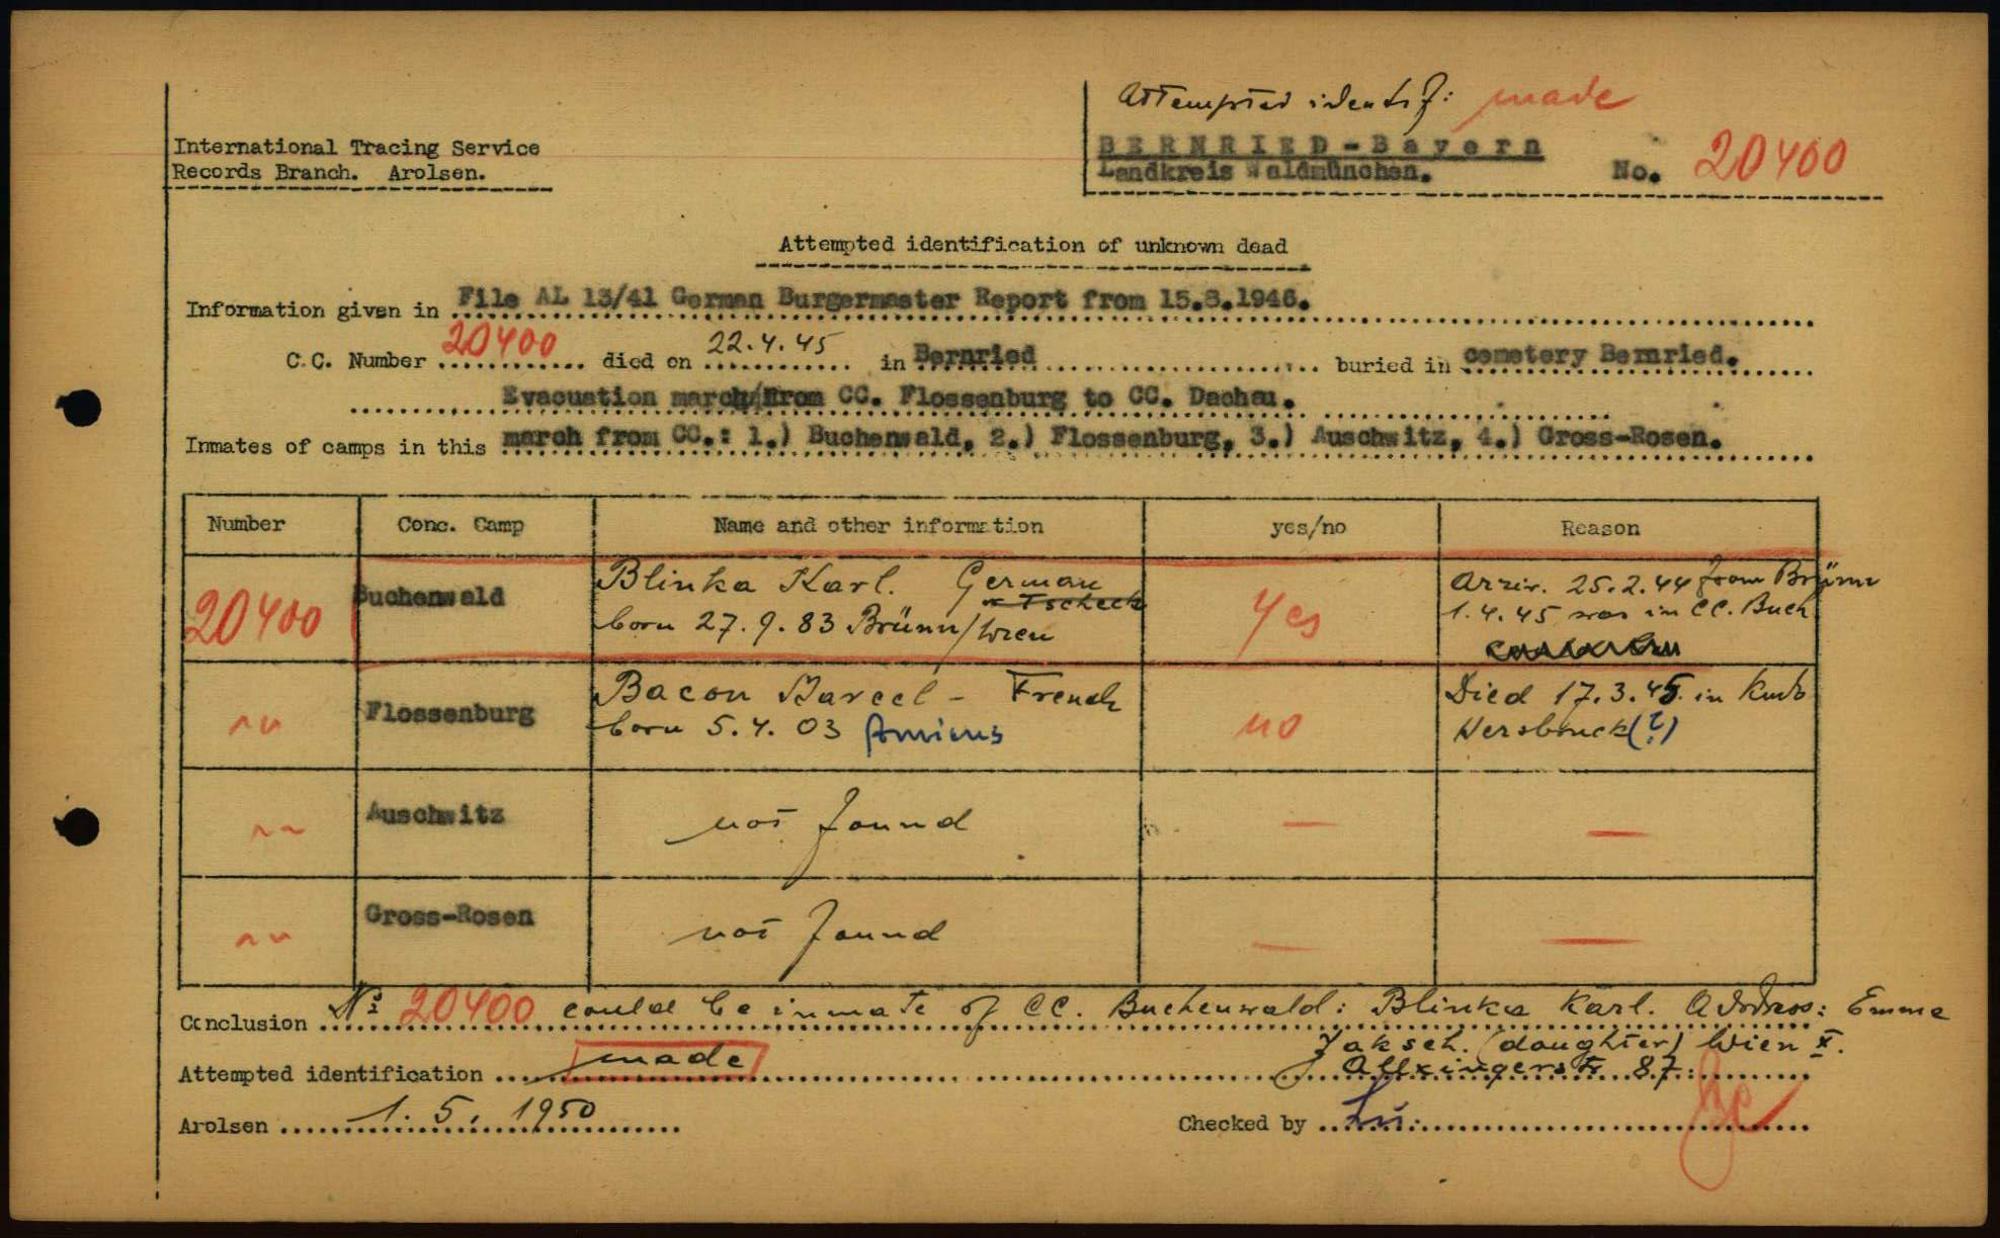 Attempted identif: made
International Tracing Service
Records Branch. Arolsen.
BERNRIED-Bayern
Landkreis Waldmünchen. No. 20400
Attempted identification of unknown dead
Information given in File AL 13/41 German Burgermaster Report from 15.8.1946.
C.C. Number 20400 died on 22.4.45 in Bernried buried in cemetery Bernried.
Evacuation march/from CC. Flossenburg to CC. Dachau.
Inmates of camps in this march from CC.: 1.) Buchenwald, 2.) Flossenburg, 3.) Auschwitz, 4.) Gross-Rosen.
Number Conc. Camp Name and other information yes/no Reason
20400 Buchenwald Blinka Karl. German Yes Arriv. 25.2.44 from Brünn
Tscheck 1.4.45 was in CC. Buch
born 27.9.83 Brünn/Wien
Flossenburg Bacon Marcel - French no Died 17.3.45 in Kdo
born 5.4.03 Amiens Hersbruck (?)
Auschwitz not found —
Gross-Rosen not found —
Conclusion No 20400 could be inmate of CC. Buchenwald: Blinka Karl. Address: Emma
Jaksch. (daughter) Wien X.
Attempted identification made Allxingerstr 87.
Arolsen 1. 5. 1950 Checked by